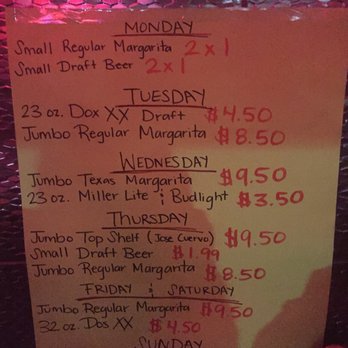 MONDAY
Small Regular Margarita 2 x 1
Small Draft Beer 2 x 1
TUESDAY
23 oz. Dox XX Draft $4.50
Jumbo Regular Margarita $8.50
WEDNESDAY
Jumbo Texas Margarita $9.50
23 oz. Miller Lite & Budlight $3.50
THURSDAY
Jumbo Top Shelf (Jose Cuervo) $9.50
Small Draft Beer $1.99
Jumbo Regular Margarita $8.50
FRIDAY & SATURDAY
Jumbo Regular Margarita $9.50
32 oz. Dos XX $4.50
SUNDAY